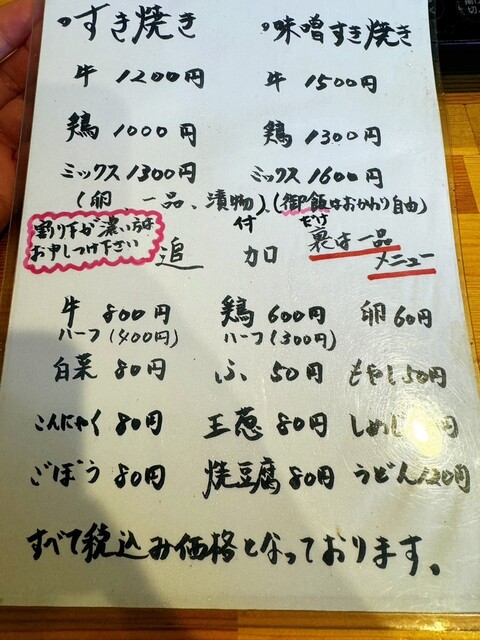 すき焼き 味噌すき焼き
牛 1200円 牛 1500円
鶏 1000円 鶏 1300円
ミックス1300円 ミックス1600円
(卵、一品、漬物付)、(御飯はおかわり自由)
だけ
割り下が濃い方は
お申しつけ下さい
追 加
裏は一品
メニュー
牛 800円 鶏 600円 卵 60円
ハーフ(400円) ハーフ(300円)
白菜 80円 ふ 50円 もやし50円
こんにゃく 80円 玉葱 80円 しめじ 円
ごぼう 80円 焼豆腐 80円 うどん120円
すべて税込み価格となっております。